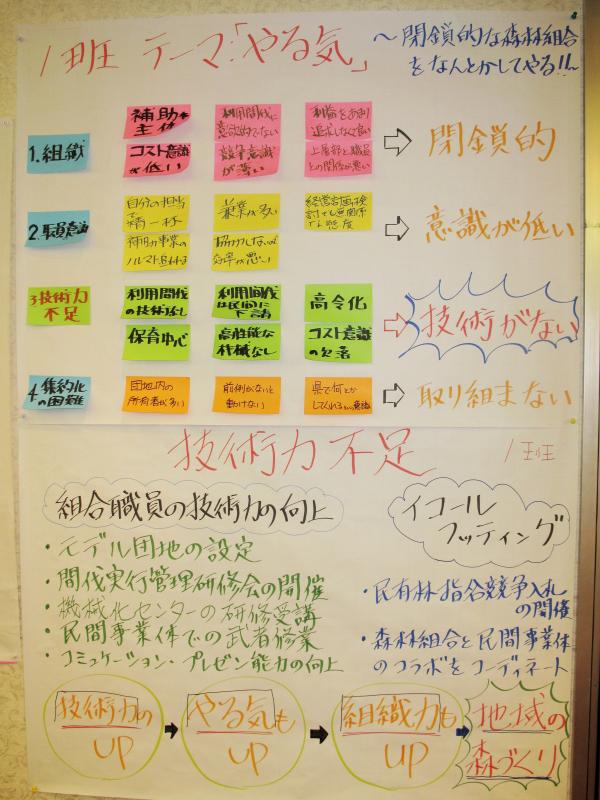 1班 テーマ:「やる気」
〜閉鎖的な森林組合
をなんとかしてやる!!〜
1.組織
補助金
主体
コスト意識
が低い
利用間伐に
意欲的でない
数量意識
が薄い
利益をあまり
追求しなくて良い
上層部と職員
との関係が悪い
閉鎖的
2.職員意識
自分の担当
で精一杯
補助事業の
兼業が多い
協力しないので
効率が悪い
経営計画の検
意識が低い
3技術力
不足
利用間伐
の技術なし
保育中心
利用間伐
は民間に
下請
高性能な
機械なし
高令化
コスト意識
の欠落
技術がない
4.集約化
の困難
団地内の
所有者が多い
前例がないと
動けない
県で何とか
してくれるという意識
取り組まない
技術力不足
1班
組合職員の技術力の向上
・モデル団地の設定
・間伐実行管理研修会の開催
・機械化センターの研修受講
・民間事業体での武者修業
・コミュケーション・プレゼン能力の向上
イコール
フッティング
・民有林指名競争入札
の開催
・森林組合と民間事業体
のコラボをコーディネート
技術力の
UP
やる気も
UP
組織力も
UP
地域の
森づくり